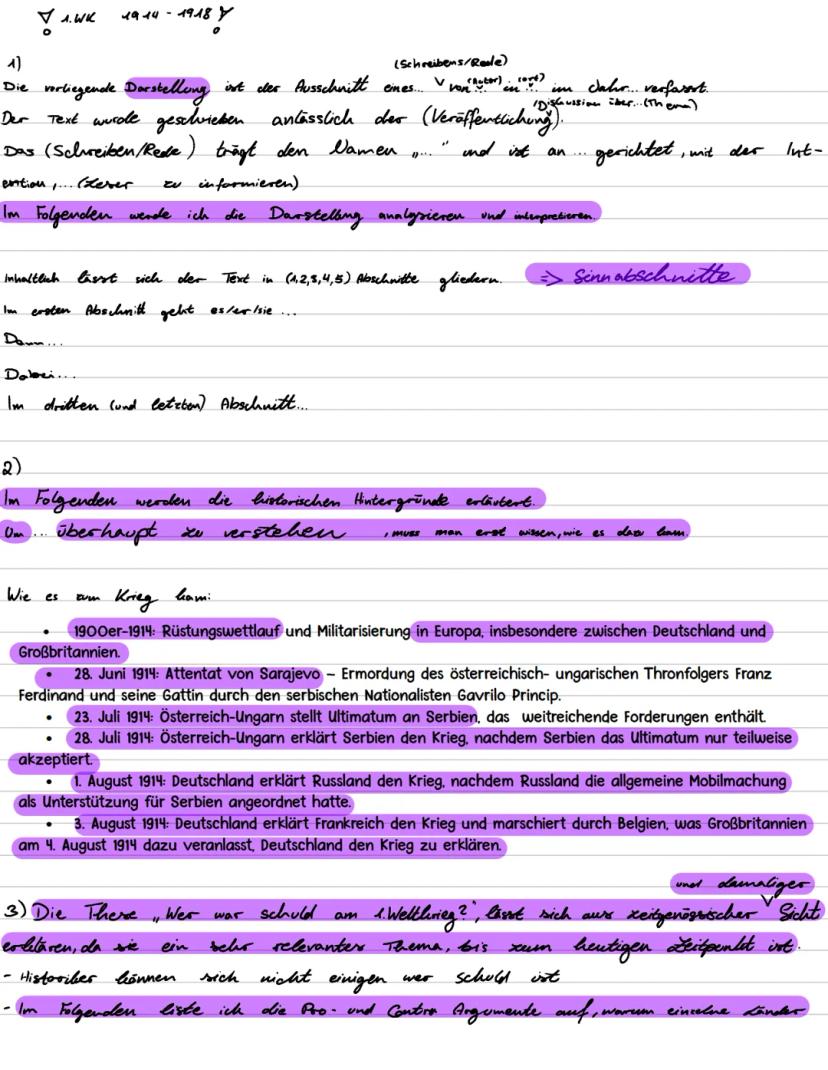 1.WK 1914 - 1918
1) (Schreibens/Rede)
Die vorliegende Darstellung ist der Ausschnitt eines... von (Autor) in (ort) im Jahr... verfasst.
/Diskussion über...(Thema)
Der Text wurde geschrieben anlässlich der (Veröffentlichung).
Das (Schreiben/Rede) trägt den Namen „..." und ist an ... gerichtet, mit der Int-
ention,... (Leser zu informieren)
Im Folgenden werde ich die Darstellung analysieren und interpretieren.
Inhaltlich lässt sich der Text in (1,2,3,4,5) Abschnitte gliedern. => Sinnabschnitte
Im ersten Abschnitt geht es/er/sie ...
Dann...
Dabei...
Im dritten (und letzten) Abschnitt...
2)
Im Folgenden werden die historischen Hintergründe erläutert.
Um ... überhaupt zu verstehen, muss man erst wissen, wie es dazu kam.
Wie es zum Krieg kam:
• 1900er-1914: Rüstungswettlauf und Militarisierung in Europa, insbesondere zwischen Deutschland und
Großbritannien.
• 28. Juni 1914: Attentat von Sarajevo – Ermordung des österreichisch- ungarischen Thronfolgers Franz
Ferdinand und seine Gattin durch den serbischen Nationalisten Gavrilo Princip.
• 23. Juli 1914: Österreich-Ungarn stellt Ultimatum an Serbien, das weitreichende Forderungen enthält.
• 28. Juli 1914: Österreich-Ungarn erklärt Serbien den Krieg, nachdem Serbien das Ultimatum nur teilweise
akzeptiert.
• 1. August 1914: Deutschland erklärt Russland den Krieg, nachdem Russland die allgemeine Mobilmachung
als Unterstützung für Serbien angeordnet hatte.
• 3. August 1914: Deutschland erklärt Frankreich den Krieg und marschiert durch Belgien, was Großbritannien
am 4. August 1914 dazu veranlasst, Deutschland den Krieg zu erklären.
und damaliger
3) Die These „Wer war schuld am 1.Weltkrieg?", lässt sich aus zeitgenössischer Sicht
erklären, da sie ein sehr relevantes Thema, bis zum heutigen Zeitpunkt ist.
- Historiker können sich nicht einigen wer schuld ist
- Im Folgenden liste ich die Pro- und Contra Argumente auf, warum einzelne Länder